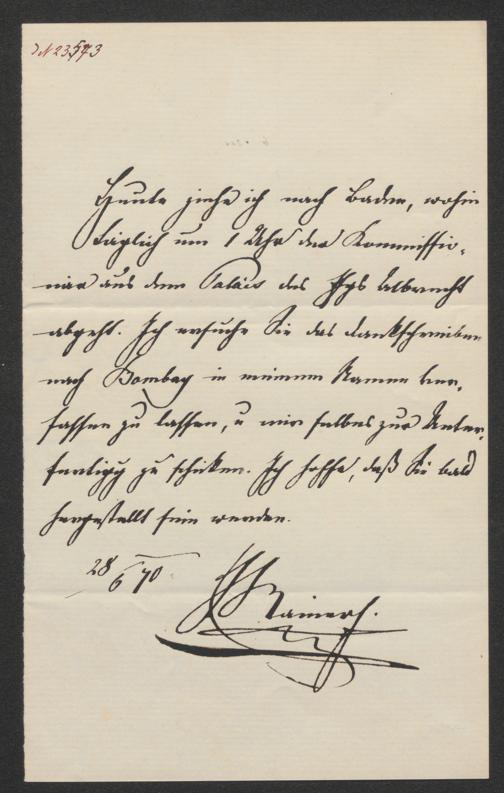 N 23573
Heute ziehe ich nach Baden, wohin
täglich um 1 Uhr der Kommissio-
när aus dem Palais des Ehgs Albrecht
abgeht. Ich ersuche Sie das Dankschreiben
nach Bombay in meinem Namen ver-
fassen zu lassen, u mir selbes zur Unter-
fertigg zu schicken. Ich hoffe, daß Sie bald
hergestellt sein werden.
28/6 70.
Rainer